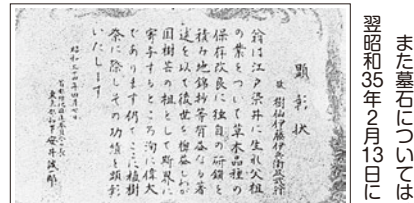 また墓石については
翌昭和35年2月13日に
顕彰状
故 樹仙伊藤伊兵衛政武翁
翁は江戸染井に生れ父祖
の業をついで草木品種の
保存改良に独自の研鑽を
積み地錦抄等有益なる著
述を以て後世を稗益しわが
国樹芸の祖として斯界に
寄与するところ洵に偉大
であります仍てここに植樹
祭に際しその功績を顕彰
いたします
昭和三十四年四月七日
東京都知事 安井誠一郎